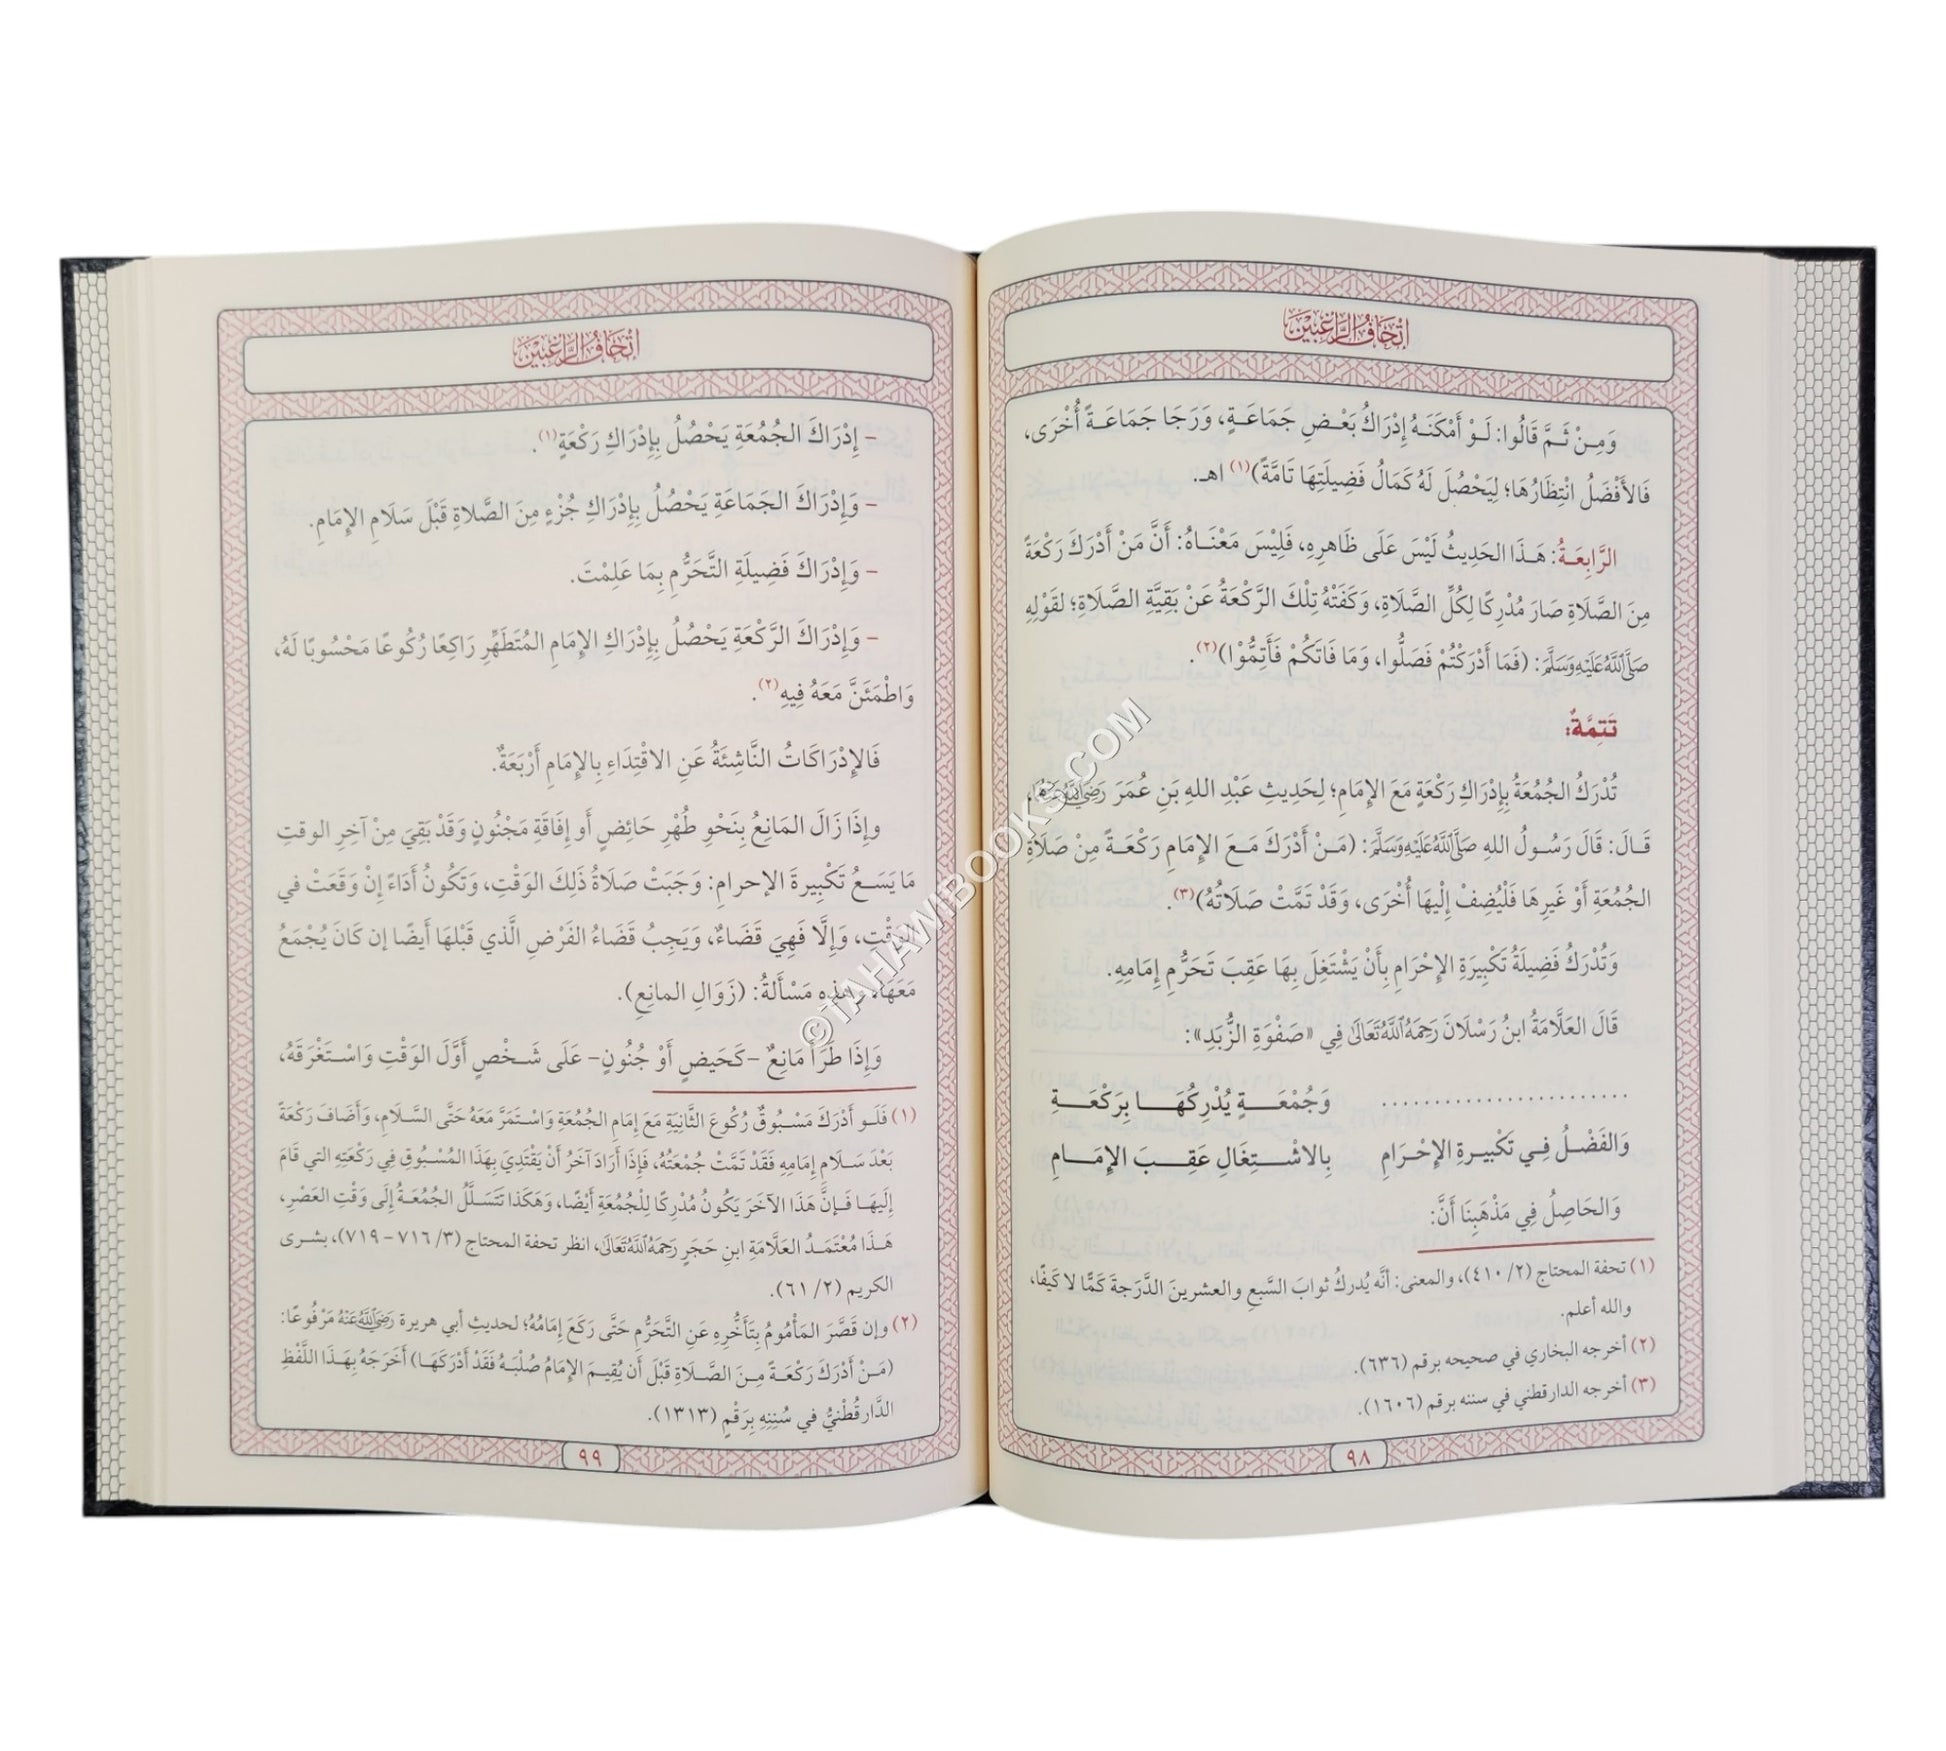 إتحاف الراغبين
وَمِنْ ثَمَّ قَالُوا: لَوْ أَمْكَنَهُ إِدْرَاكُ بَعْضِ جَمَاعَةٍ، وَرَجَا جَمَاعَةً أُخْرَى،
فَالأَفْضَلُ انْتِظَارُهَا؛ لِيَحْصُلَ لَهُ كَمَالُ فَضِيلَتِهَا تَامَّةً)(١) اهـ.
الرَّابِعَةُ: هَذَا الحَدِيثُ لَيْسَ عَلَى ظَاهِرِهِ، فَلَيْسَ مَعْنَاهُ: أَنَّ مَنْ أَدْرَكَ رَكْعَةً
مِنَ الصَّلَاةِ صَارَ مُدْرِكًا لِكُلِّ الصَّلَاةِ، وَكَفَتْهُ تِلْكَ الرَّكْعَةُ عَنْ بَقِيَّةِ الصَّلَاةِ؛ لقَوْلِهِ
صَلَّى اللَّهُ عَلَيْهِ وَسَلَّمَ: (فَمَا أَدْرَكْتُمْ فَصَلُّوا، وَمَا فَاتَكُمْ فَأَتِمُّوْا)(٢).
تَتِمَّةٌ:
تُدْرَكُ الجُمُعَةُ بِإِدْرَاكِ رَكْعَةٍ مَعَ الإِمَامِ؛ لِحَدِيثِ عَبْدِ اللهِ بَنِ عُمَرَ رَضِيَ اللَّهُ عَنْهُمَا،
قَالَ: قَالَ رَسُولُ اللهِ صَلَّى اللَّهُ عَلَيْهِ وَسَلَّمَ: (مَنْ أَدْرَكَ مَعَ الإِمَامِ رَكْعَةً مِنْ صَلَاةِ
الجُمُعَةِ أَوْ غَيرِهَا فَلْيُضِفْ إِلَيْهَا أُخْرَى، وَقَدْ تَمَّتْ صَلَاتُهُ)(٣).
وَتُدْرَكُ فَضِيلَةُ تَكْبِيَرَةِ الإِحْرَامِ بِأَنْ يَشْتَغِلَ بِهَا عَقِبَ تَحَرُّمِ إِمَامِهِ.
قَالَ العَلَّامَةُ ابنُ رَسْلَانَ رَحِمَهُ اللَّهُ تَعَالَى فِي «صَفْوَةِ الزُّبَدِ»:
........................ وَجُمْعَةٍ يُدْرِكُهَا بِرَكْعَةِ
وَالفَضْلُ فِي تَكْبِيرةِ الإِحْرَامِ بِالاشْتِغَالِ عَقِبَ الإِمَامِ
وَالحَاصِلُ فِي مَذْهَبِنَا أَنَّ:
(١) تحفة المحتاج (٢/ ٤١٠)، والمعنى: أنَّه يُدركُ ثوابَ السَّبعِ والعشرينَ الدَّرَجةَ كَمًّا لا كَيفًا،
والله أعلم.
(٢) أخرجه البخاري في صحيحه برقم (٦٣٦).
(٣) أخرجه الدارقطني في سننه برقم (١٦٠٦).
٩٨
إتحاف الراغبين
- إِدْرَاكَ الجُمُعَةِ يَحْصُلُ بِإِدْرَاكِ رَكْعَةٍ(١).
- وَإِدْرَاكَ الجَمَاعَةِ يَحْصُلُ بِإِدْرَاكِ جُزْءٍ مِنَ الصَّلاةِ قَبْلَ سَلَامِ الإِمَامِ.
- وَإِدْرَاكَ فَضِيلَةِ التَّحَرُّمِ بِمَا عَلِمْتَ.
- وَإِدْرَاكَ الرَّكْعَةِ يَحْصُلُ بِإِدْرَاكِ الإِمَامِ المُتَطَهِّرِ رَاكِعًا رُكُوعًا مَحْسُوبًا لَهُ،
وَاطْمَئَنَّ مَعَهُ فِيهِ(٢).
فَالإِدْرَاكَاتُ النَّاشِئَةُ عَنِ الاقْتِدَاءِ بِالإِمَامِ أَرْبَعَةٌ.
وإِذَا زَالَ المَانِعُ بِنَحْوِ طُهْرِ حَائِضٍ أَو إِفَاقَةِ مَجْنُونٍ وَقَدْ بَقِيَ مِنْ آخِرِ الوقتِ
مَا يَسَعُ تَكْبِيرةَ الإحرامِ: وَجَبَتْ صَلَاةُ ذَلِكَ الوَقْتِ، وَتَكُونُ أَدَاءً إِنْ وَقَعَتْ في
الوَقْتِ، وَإِلَّا فَهِيَ قَضَاءٌ، وَيَجِبُ قَضَاءُ الفَرْضِ الَّذي قَبْلَهَا أَيضًا إن كَانَ يُجْمَعُ
مَعَهَا، وهذِهِ مَسْأَلَةُ: (زَوَالِ المانِعِ).
وَإِذَا طَرَأ مَانِعٌ -كَحَيضٍ أَوْ جُنُونٍ- عَلَى شَخْصٍ أَوَّلَ الوَقْتِ وَاسْتَغْرَقَهُ،
(١) فَلَو أَدْرَكَ مَسْبُوقٌ رُكُوعَ الثَّانِيَةِ مَعَ إِمَامِ الجُمُعَةِ وَاسْتَمَرَّ مَعَهُ حَتَّى السَّلَامِ، وَأَضَافَ رَكْعَةً
بَعْدَ سَلَامِ إِمَامِهِ فَقَدْ تَمَّتْ جُمْعَتُهُ، فَإِذَا أَرَادَ آخَرُ أَنْ يَقْتَدِيَ بِهَذَا المُسْبُوقِ فِي رَكْعَتِهِ التي قَامَ
إِلَيهَا فَإِنَّ هَذَا الآخَرَ يَكُونُ مُدْرِكًا لِلْجُمُعَةِ أَيْضًا، وَهَكَذَا تَتَسَلَّلُ الجُمُعَةُ إِلَى وَقْتِ العَصْرِ،
هَذَا مُعْتَمَدُ العَلَّامَةِ ابنِ حَجَرٍ رَحِمَهُ اللَّهُ تَعَالَى، انظر تحفة المحتاج (٣/ ٧١٦ - ٧١٩)، بشرى
الكريم (٢/ ٦١).
(٢) وإن قَصَّرَ المَأْمُومُ بِتَأَخُّرِهِ عَنِ التَّحَرُّمِ حَتَّى رَكَعَ إِمَامُهُ؛ لحديثِ أبي هريرة رَضِيَ اللَّهُ عَنْهُ مَرْفُوعًا:
(مَنْ أَدْرَكَ رَكْعَةً مِنَ الصَّلاةِ قَبْلَ أَن يُقِيمَ الإِمَامُ صُلْبَهُ فَقَدْ أَدْرَكَهَا) أَخَرَجَهُ بِهَذَا اللَّفْظِ
الدَّارقُطْنيُّ في سُنَنِهِ بِرَقْمٍ (١٣١٣).
٩٩
©TAHAWIBOOKS.COM